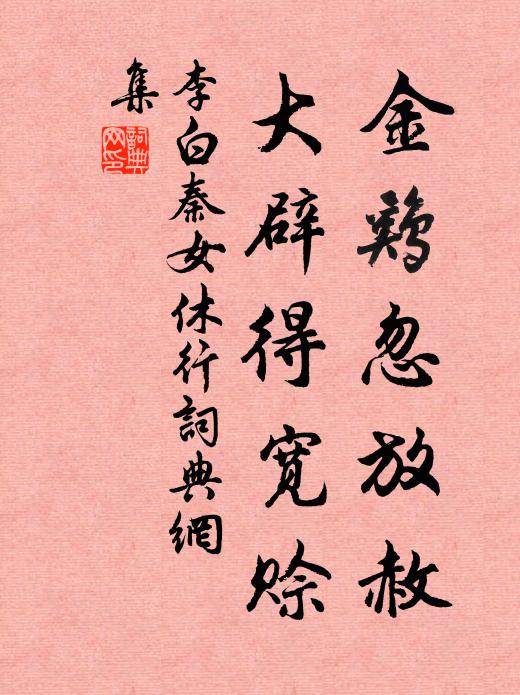 金鷄忽放赦
大辟得寬賒
李白秦女休行詞典網
集
詞典網印